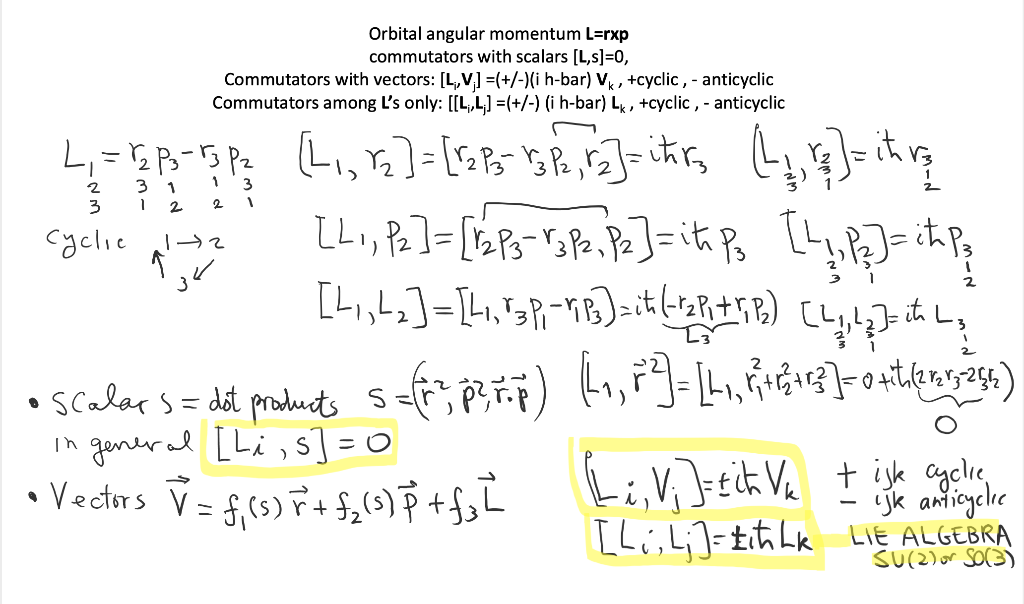 Orbital angular momentum L=rxp
commutators with scalars [L,s]=0,
Commutators with vectors: [Lᵢ,Vⱼ] =(+/-)(i h-bar) Vₖ , +cyclic , - anticyclic
Commutators among L's only: [[Lᵢ,Lⱼ] =(+/-) (i h-bar) Lₖ , +cyclic , - anticyclic
L₁ = r₂ p₃ - r₃ p₂ [L₁, r₂] = [r₂p₃ - r₃p₂, r₂] = iħ r₃ [L₁, r₂] = iħ r₃
2 3 1 1 3 2 3 1
3 1 2 2 1 3 1 2
cyclic 1→2 [L₁, p₂] = [r₂p₃ - r₃p₂, p₂] = iħ p₃ [L₁, p₂] = iħ p₃
3 2 3 1
3 1 2
[L₁, L₂] = [L₁, r₃p₁ - r₁p₃] = iħ(-r₂p₁ + r₁p₂) [L₁, L₂] = iħ L₃
L₃ 2 3 1
3 1 2
• Scalar s = dot products s = (r⃗², p⃗², r⃗·p⃗) [L₁, r⃗²] = [L₁, r₁² + r₂² + r₃²] = 0 + iħ(2r₂r₃ - 2r₃r₂)
0
in general [Lᵢ, s] = 0
• Vectors V⃗ = f₁(s) r⃗ + f₂(s) p⃗ + f₃ L⃗ [Lᵢ, Vⱼ] = ±iħ Vₖ + ijk cyclic
- ijk anticyclic
[Lᵢ, Lⱼ] = ±iħ Lₖ LIE ALGEBRA
SU(2) or SO(3)